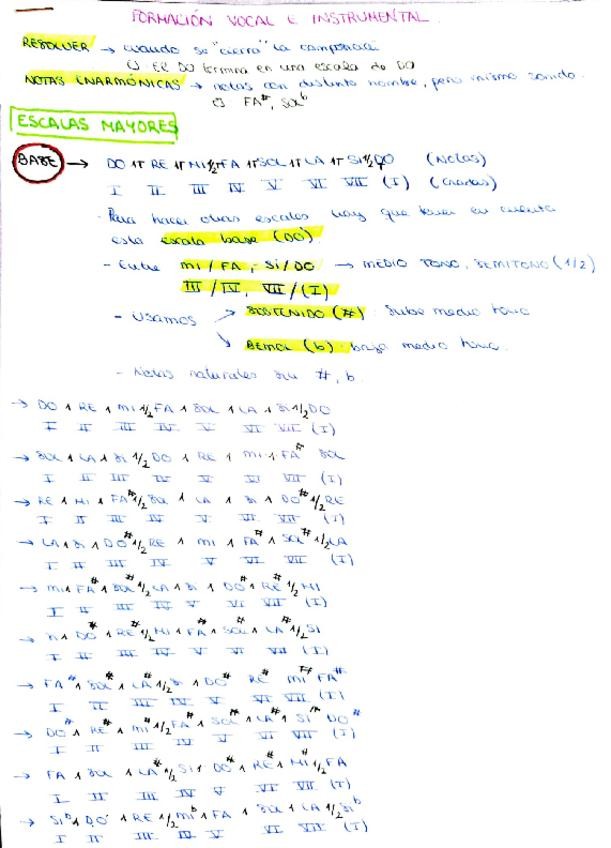 FORMACIÓN VOCAL E INSTRUMENTAL.
RESOLVER → cuando se "cierra" la composición
↳ EL DO termina en una escala de DO
NOTAS ENARMÓNICAS → notas con distinto nombre, pero mismo sonido.
↳ FA#, SOLb
ESCALAS MAYORES
BASE → DO 1T RE 1T MI 1/2T FA 1T SOL 1T LA 1T SI 1/2T DO (Notas)
I II III IV V VI VII (I) (Grados)
- Para hacer otras escalas hay que tener en cuenta
esta escala base (DO).
- Entre MI/FA, SI/DO → MEDIO TONO, SEMITONO (1/2)
III/IV, VII/(I)
- USAMOS → SOSTENIDO (#): Sube medio tono
↘ BEMOL (b): baja medio tono.
- Notas naturales sin #, b
→ DO 1 RE 1 MI 1/2 FA 1 SOL 1 LA 1 SI 1/2 DO
I II III IV V VI VII (I)
→ SOL 1 LA 1 SI 1/2 DO 1 RE 1 MI 1 FA# SOL
I II III IV V VI VII (I)
→ RE 1 MI 1 FA# 1/2 SOL 1 LA 1 SI 1 DO# 1/2 RE
I II III IV V VI VII (I)
→ LA 1 SI 1 DO# 1/2 RE 1 MI 1 FA# 1 SOL# 1/2 LA
I II III IV V VI VII (I)
→ MI 1 FA# 1 SOL# 1/2 LA 1 SI 1 DO# 1 RE# 1/2 MI
I II III IV V VI VII (I)
→ SI 1 DO# 1 RE# 1/2 MI 1 FA# 1 SOL# 1 LA# 1/2 SI
I II III IV V VI VII (I)
→ FA# 1 SOL# 1 LA# 1/2 SI 1 DO# RE# MI# FA#
I II III IV V VI VII (I)
→ DO# 1 RE# 1 MI# 1/2 FA# 1 SOL# 1 LA# 1 SI# DO#
I II III IV V VI VII (I)
→ FA 1 SOL 1 LA# 1/2 SI 1 DO# 1 RE# 1 MI# 1/2 FA
I II III IV V VI VII (I)
→ SIb 1 DO 1 RE 1/2 MIb 1 FA 1 SOL 1 LA 1/2 SIb
I II III IV V VI VII (I)